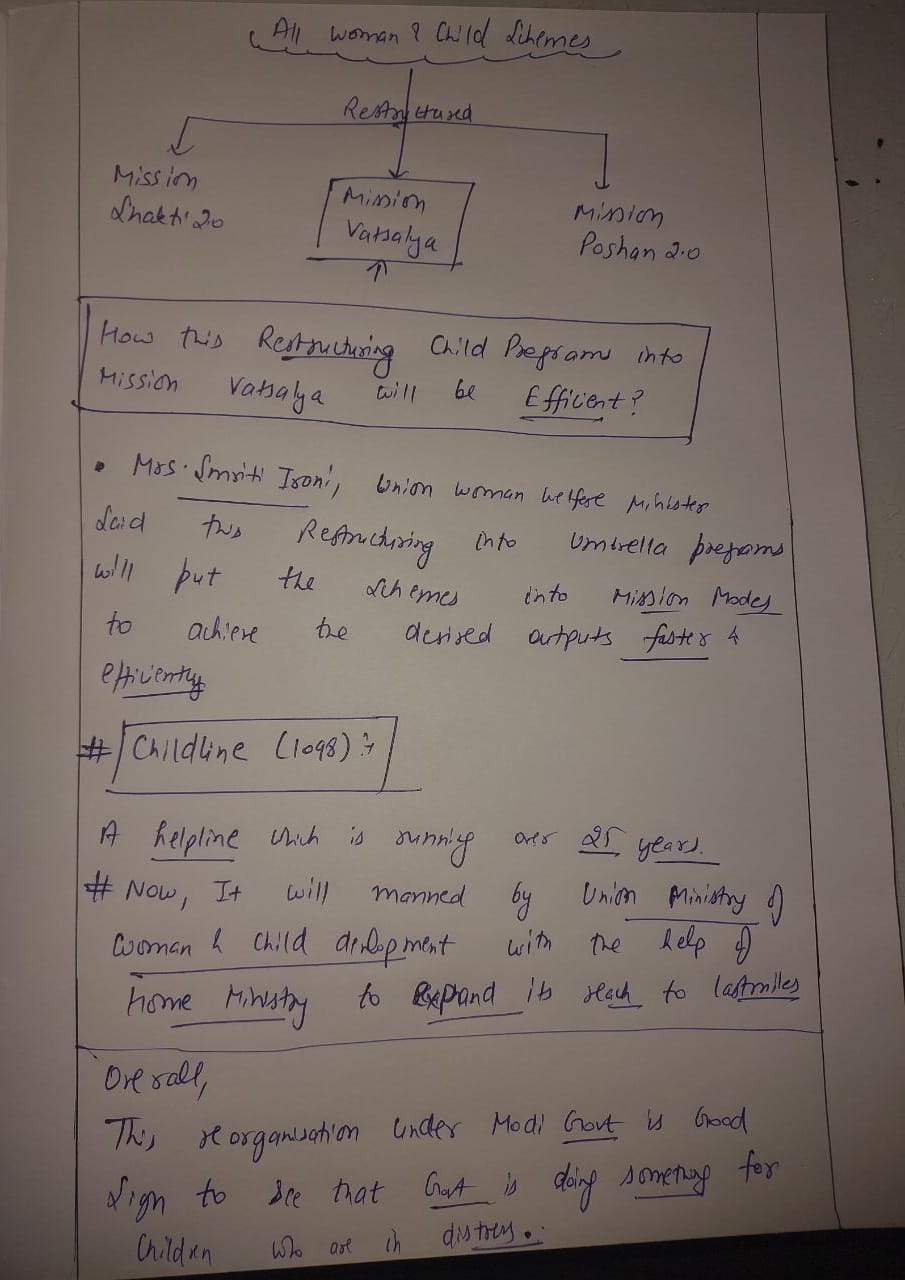 All Woman & Child Schemes
Restructured
Mission
Shakti 2.0
Mission
Vatsalya
Mission
Poshan 2.0
How this Restructuring Child Programs into
Mission Vatsalya will be Efficent?
• Mrs. Smriti Irani, Union woman welfare Minister
Said this Restructuring into Umbrella programs
will put the schemes into Mission Modes
to achieve the desired outputs faster &
efficiently
# Childline (1098) :-
A helpline which is running over 25 years.
# Now, It will manned by Union Ministry of
Woman & child development with the help of
Home Ministry to Expand its reach to lastmiles
Overall,
This reorganisation under Modi Govt is Good
Sign to see that Govt is doing something for
Children who are in distress.